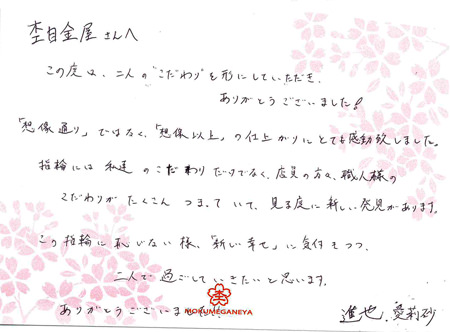 杢目金屋さんへ
この度は、二人の"こだわり"を形にしていただき、
ありがとうございました!
「想像通り」ではなく、「想像以上」の仕上がりにとても感動致しました。
指輪には私達のこだわりだけでなく、店員の方々、職人様の
こだわりがたくさんつまっていて、見る度に新しい発見があります。
この指輪に恥じない様、「新しい幸せ」に気付きつつ、
二人で過ごしていきたいと思います。
ありがとうございました。
MOKUMEGANEYA
進也、愛莉砂